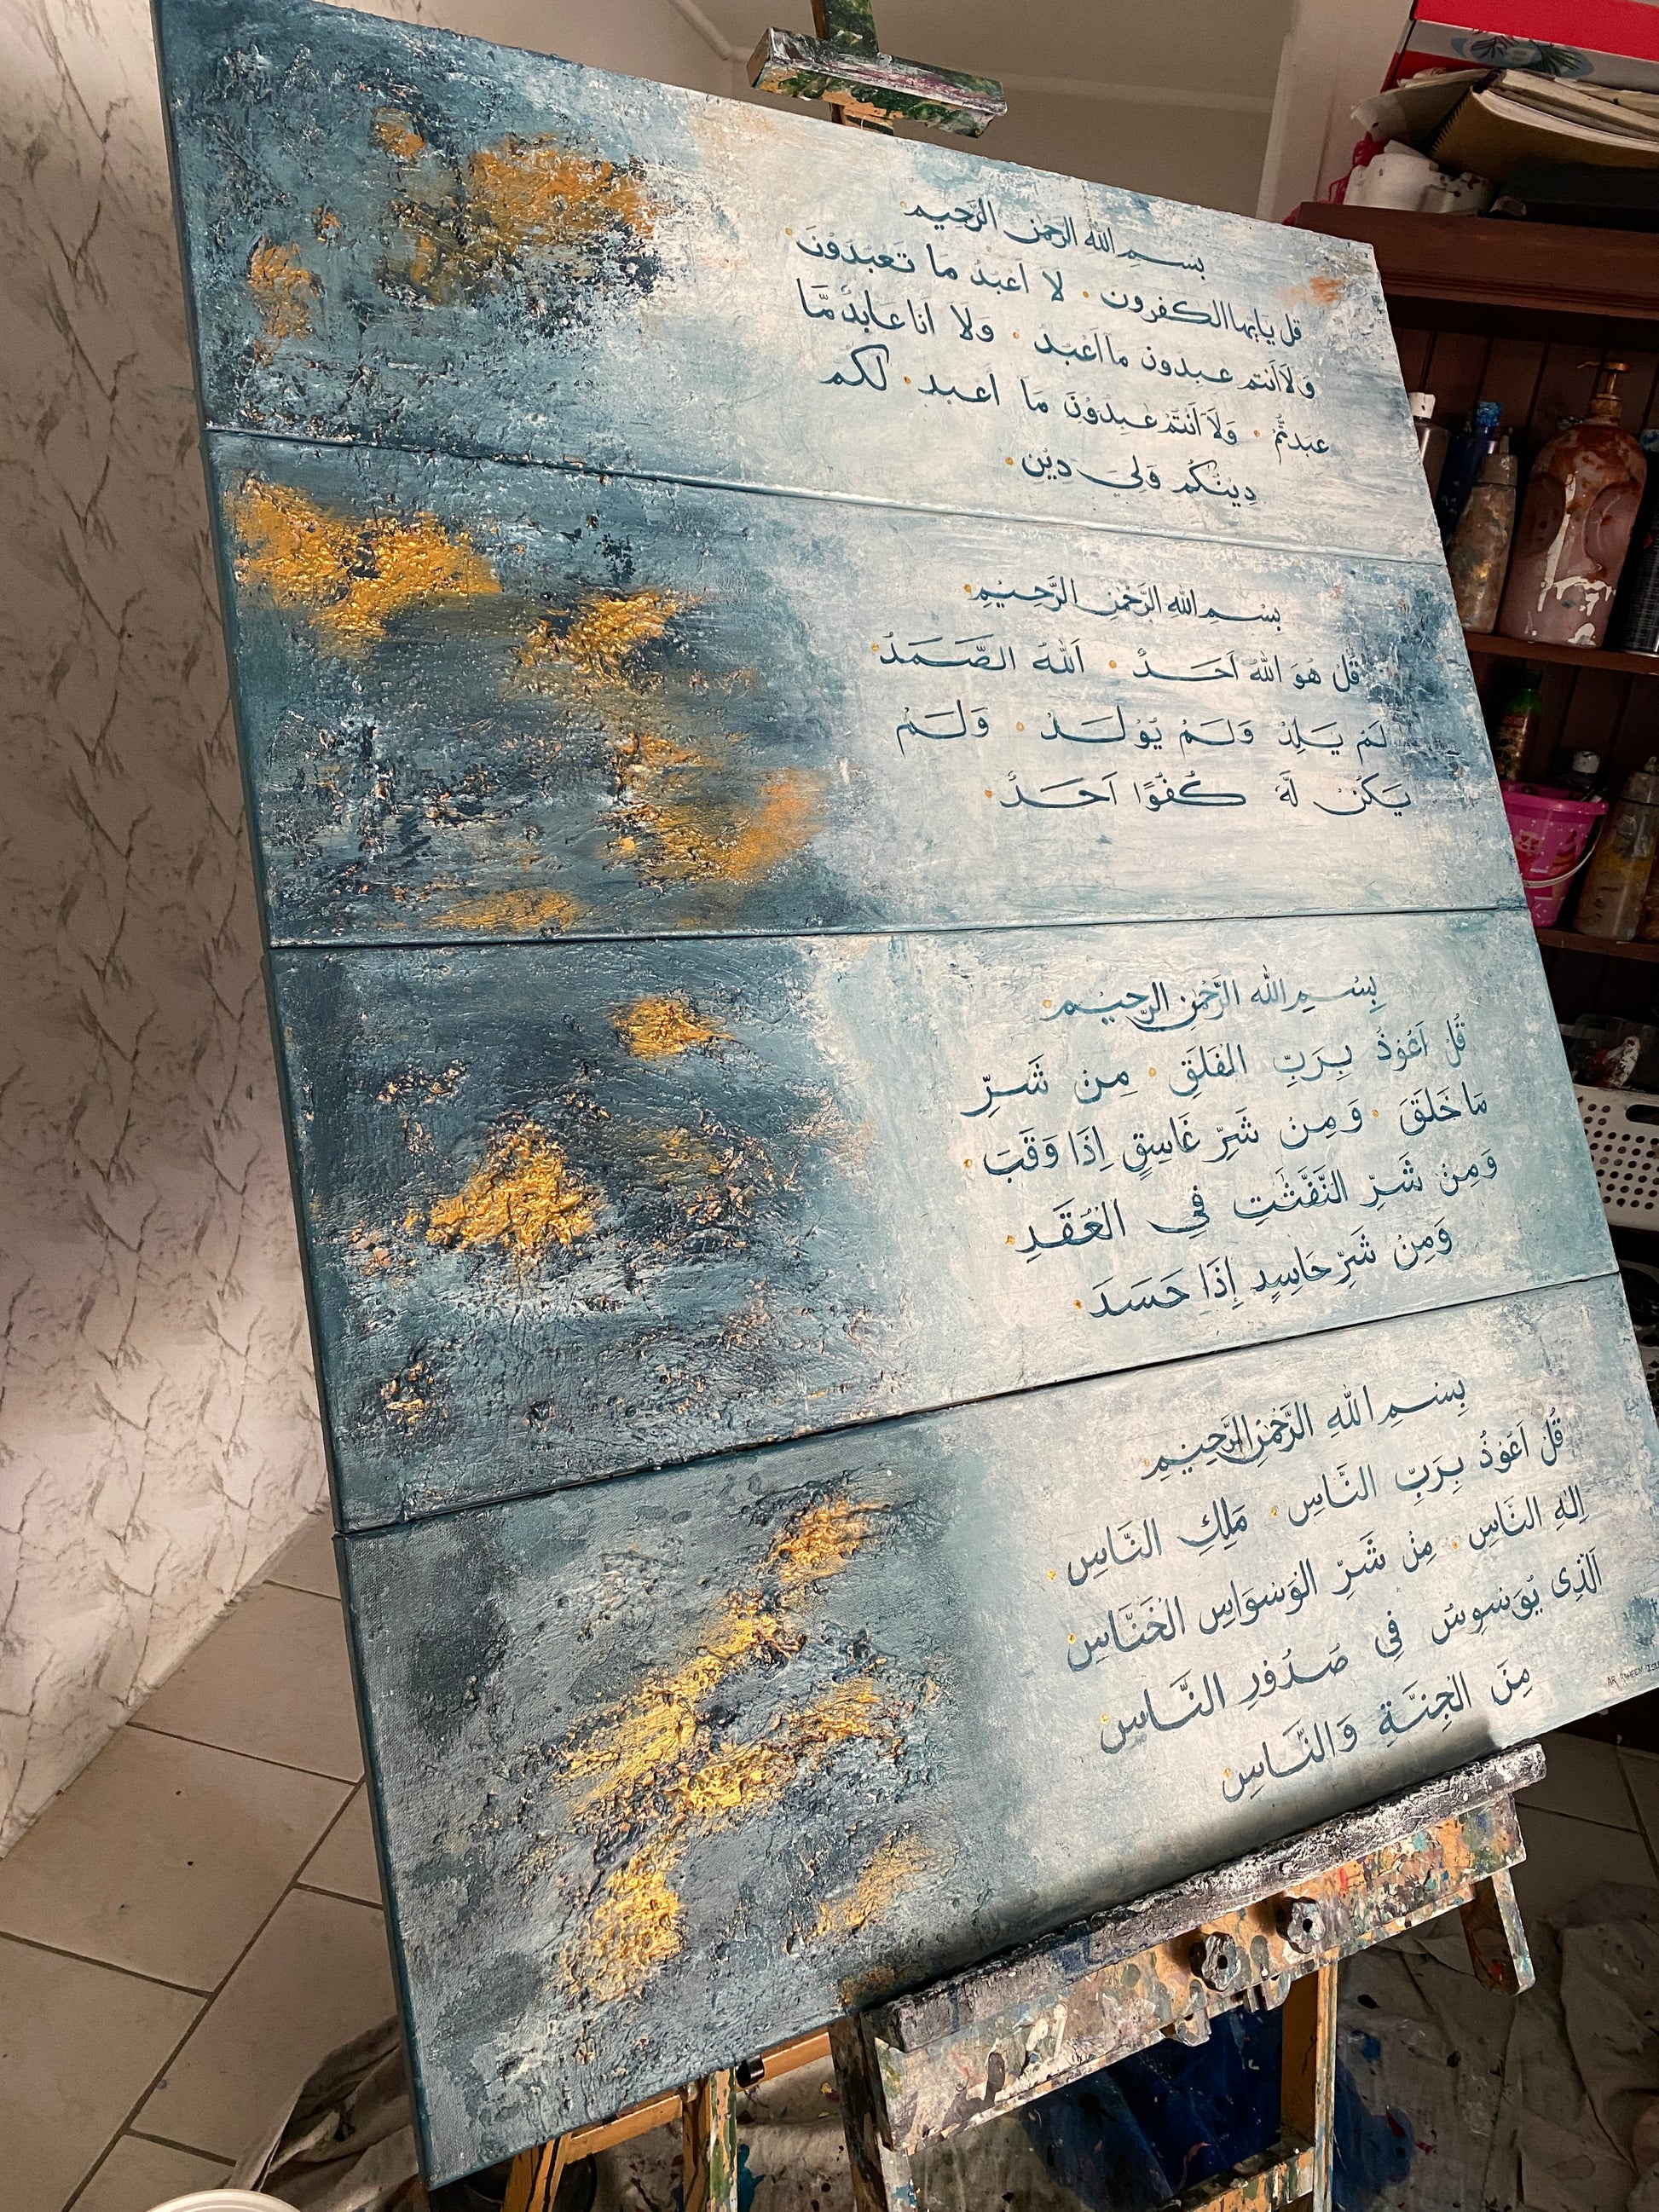 بسم الله الرحمن الرحيم
قل يايها الكفرون • لا اعبد ما تعبدون •
ولا انتم عبدون ما اعبد • ولا انا عابد ما
عبدتم • ولا انتم عبدون ما اعبد • لكم
دينكم ولي دين •
بسم الله الرحمن الرحيم •
قل هو الله احد • الله الصمد •
لم يلد ولم يولد • ولم
يكن له كفوا احد •
بسم الله الرحمن الرحيم •
قل اعوذ برب الفلق • من شر
ما خلق • ومن شر غاسق اذا وقب •
ومن شر النفثت في العقد •
ومن شر حاسد إذا حسد •
بسم الله الرحمن الرحيم
قل اعوذ برب الناس • ملك الناس •
اله الناس • من شر الوسواس الخناس •
الذى يوسوس فى صدور الناس •
من الجنة والناس